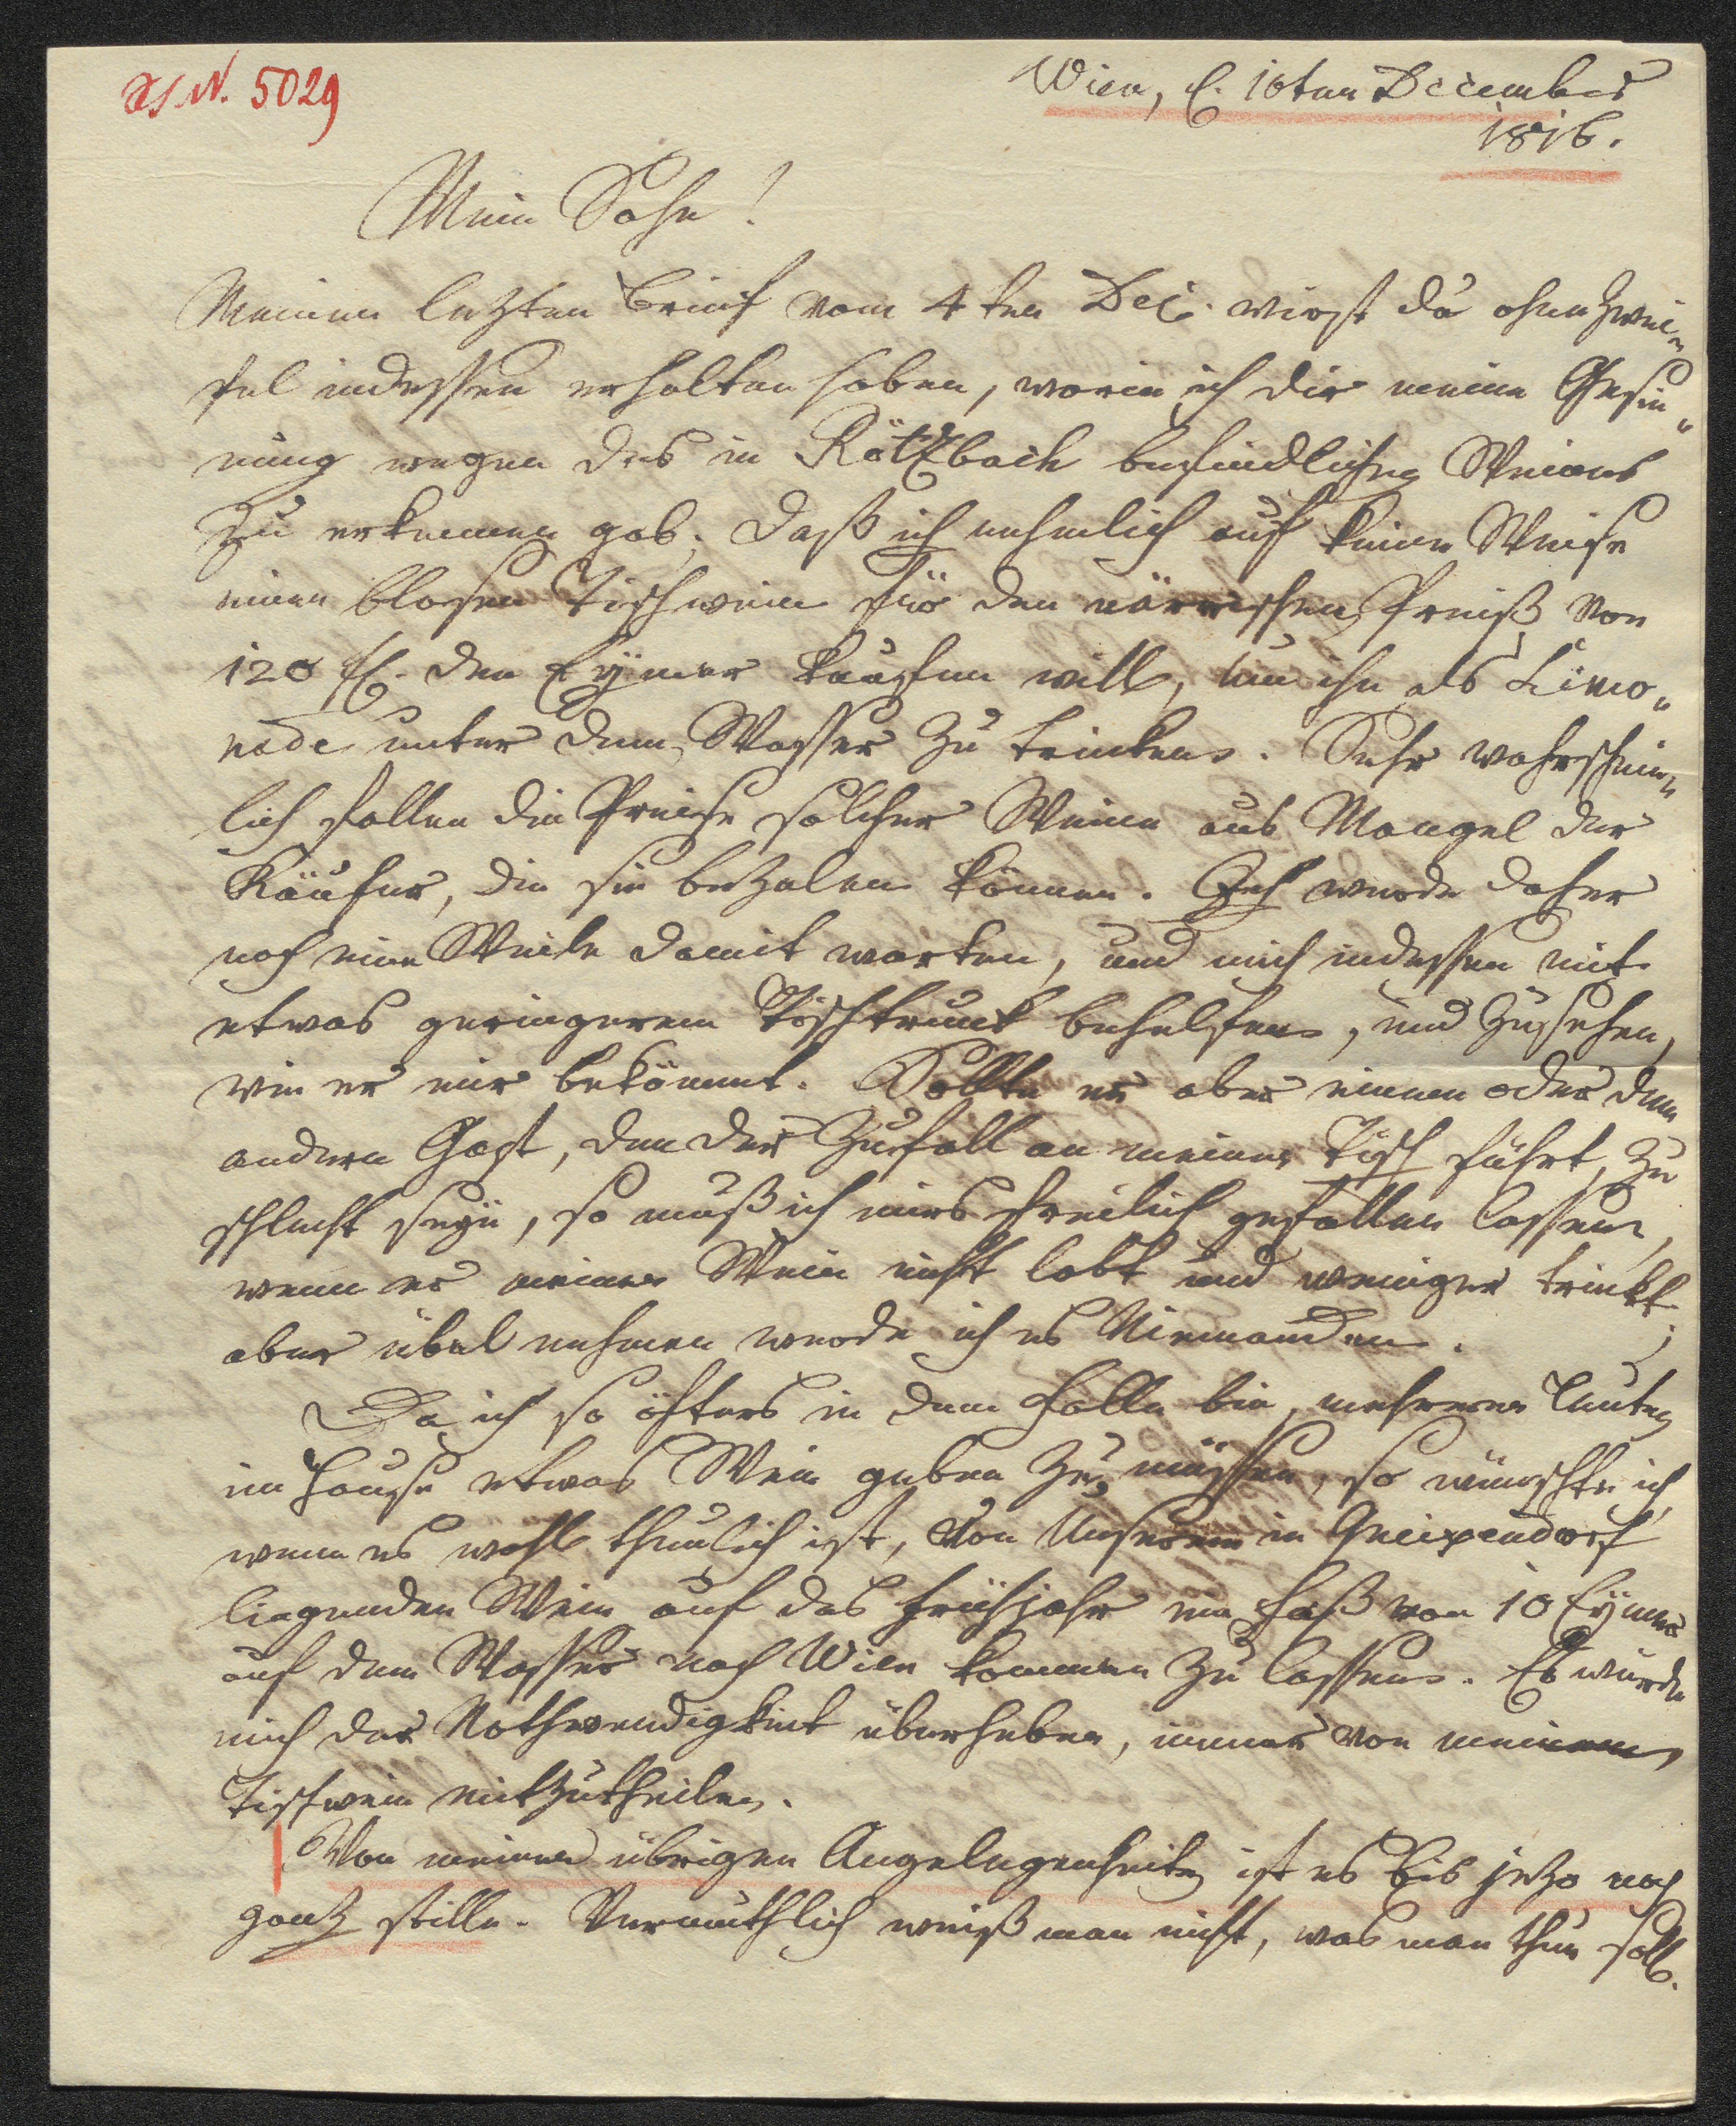 N. 5029
Wien, d. 10ten December
1816.
Mein Sohn!
Meinen letzten Brief vom 4ten Dec. wirst du ohne Zwei„
fel indessen erhalten haben, worin ich dir meine Gesin„
nung wegen des in Rötzbach befindlichen Weines
zu erkennen gab. Daß ich nehmlich auf keine Weise
einen blosen Tischwein für den närrischen Preiß von
120 fl. den Eymer kaufen will, um ihn als Limo„
nade unter dem Wasser zu trinken. Sehr wahrschein„
lich fallen die Preise solcher Weine aus Mangel der
Käufer, die sie bezalen können. Ich werde daher
noch eine Weile damit warten, und mich indessen mit
etwas geringerem Tischtrunk behelfen, und zusehen,
wie er mir bekömmt. Sollte er aber einem oder dem
andern Gast, den der Zufall an meinen Tisch führt, zu
schlecht seyn, so muß ich mirs freilich gefallen lassen,
wenn er meinen Wein nicht lobt und weniger trinkt;
aber übel nehmen werde ich es Niemanden.
Da ich so öfters in dem Falle bin, mehreren Leuten
im Hause etwas Wein geben zu müssen, so wünschte ich,
wenn es wohl thunlich ist, von unserem in Gneixendorf
liegenden Wein auf das Frühjahr ein Faß von 10 Eymer
auf dem Wasser nach Wien kommen zu lassen. Es würde
mich der Nothwendigkeit überheben, immer von meinem
Tischwein mitzutheilen.
Von meinen übrigen Angelegenheiten ist es bis jetzo noch
ganz stille. Vermuthlich weiß man nicht, was man thun soll.